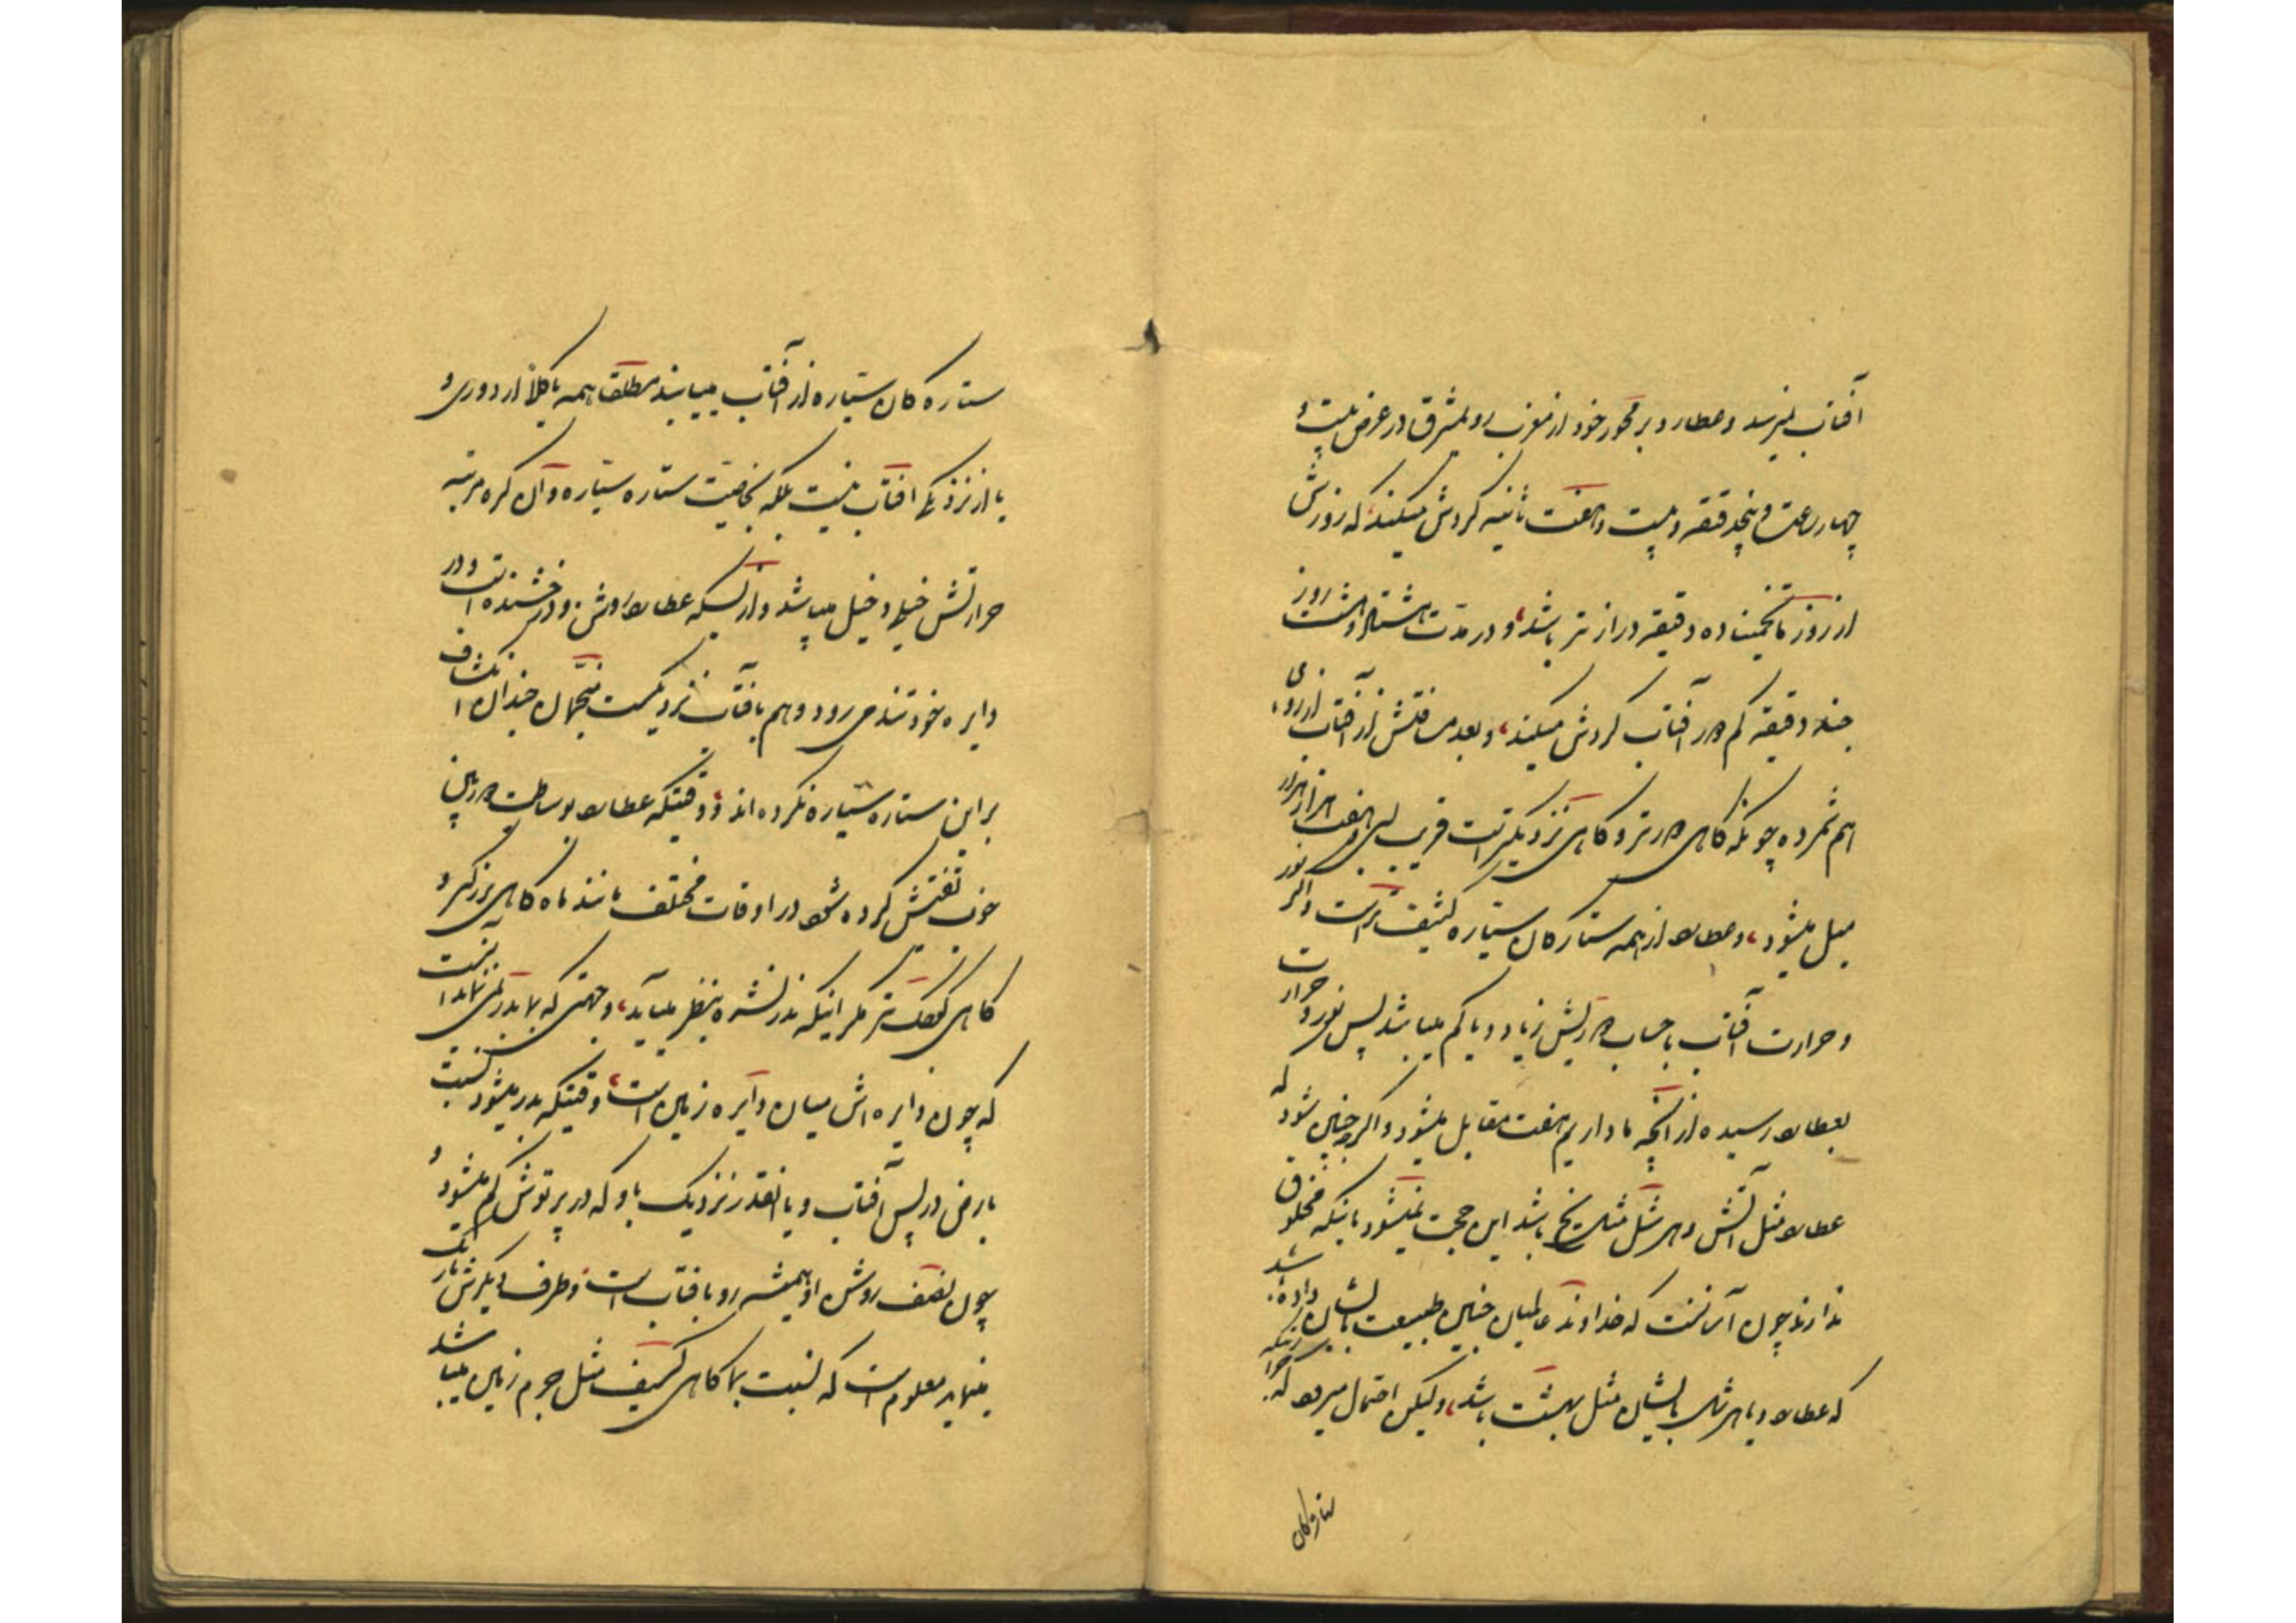 آفتاب نمیرسد و عطارد بر محور خود از مغرب رو بمشرق در عرض بیست و
چهار ساعت و پنجدقیقه و بیست و هفت ثانیه گردش میکند که روزش
از روز ما تخمیناً ده دقیقه درازتر باشد، و در مدت هشتاد و هشت روز
چند دقیقه کم دور آفتاب گردش میکند، و بعد مسافتش از آفتاب از روی
هم شمرده چونکه گاهی دورتر و گاهی نزدیکتر است قریب سی و هفت هزار هزار
میل میشود، و عطارد از همه ستارگان سیاره کثیف‌تر است و اگر نور
و حرارت آفتاب با حساب دوریش زیاد و یا کم میباشد پس نور و حرارت
بعطارد رسیده از آنچه ما داریم هفت مقابل میشود و اگر چنین شود که
عطارد مثل آتش و هرشل مثل یخ باشد این حجت نمیشود باینکه مخلوق
ندارند چون آسانست که خداوند عالمیان چنین طبیعت بایشان داده باشد
که عطارد و یا هرشل بایشان مثل بهشت باشد، ولیکن احتمال میرود که
ستارگان
ستاره‌گان سیاره از آفتاب میابند مطلق همه با کلاً از دوری و
یا از نزدیکی افتاب نیست بلکه بخاصیت ستاره سیاره و آن کره مرتبه
حرارتش خیلی دخیل میباشد و از بسکه عطارد روشن و درخشنده است و در
دایره خود تند می رود و هم بافتاب نزدیکست منجمان چندان انکشاف
بر این ستاره سیاره نکرده‌اند، و وقتیکه عطارد بوساطت دوربین
خوب تفتیش کرده شود در اوقات مختلف مانند ماه گاهی بزرگتر و
گاهی کوچک‌تر مگر اینکه بدر نشده بنظر میآید، و جهتی که بما بدر نمی‌نماید اینست
که چون دایره‌اش میان دایره زمین است، وقتیکه بدر میشود نسبت
بارض در پس آفتاب و یا انقدر نزدیک باو که در پرتوش گم میشود و
چون نصف روشن او همیشه رو بافتاب است و طرف دیگرش تاریک
مینماید معلوم است که نسبت بما گاهی کسیف مثل جرم زمین میباشد